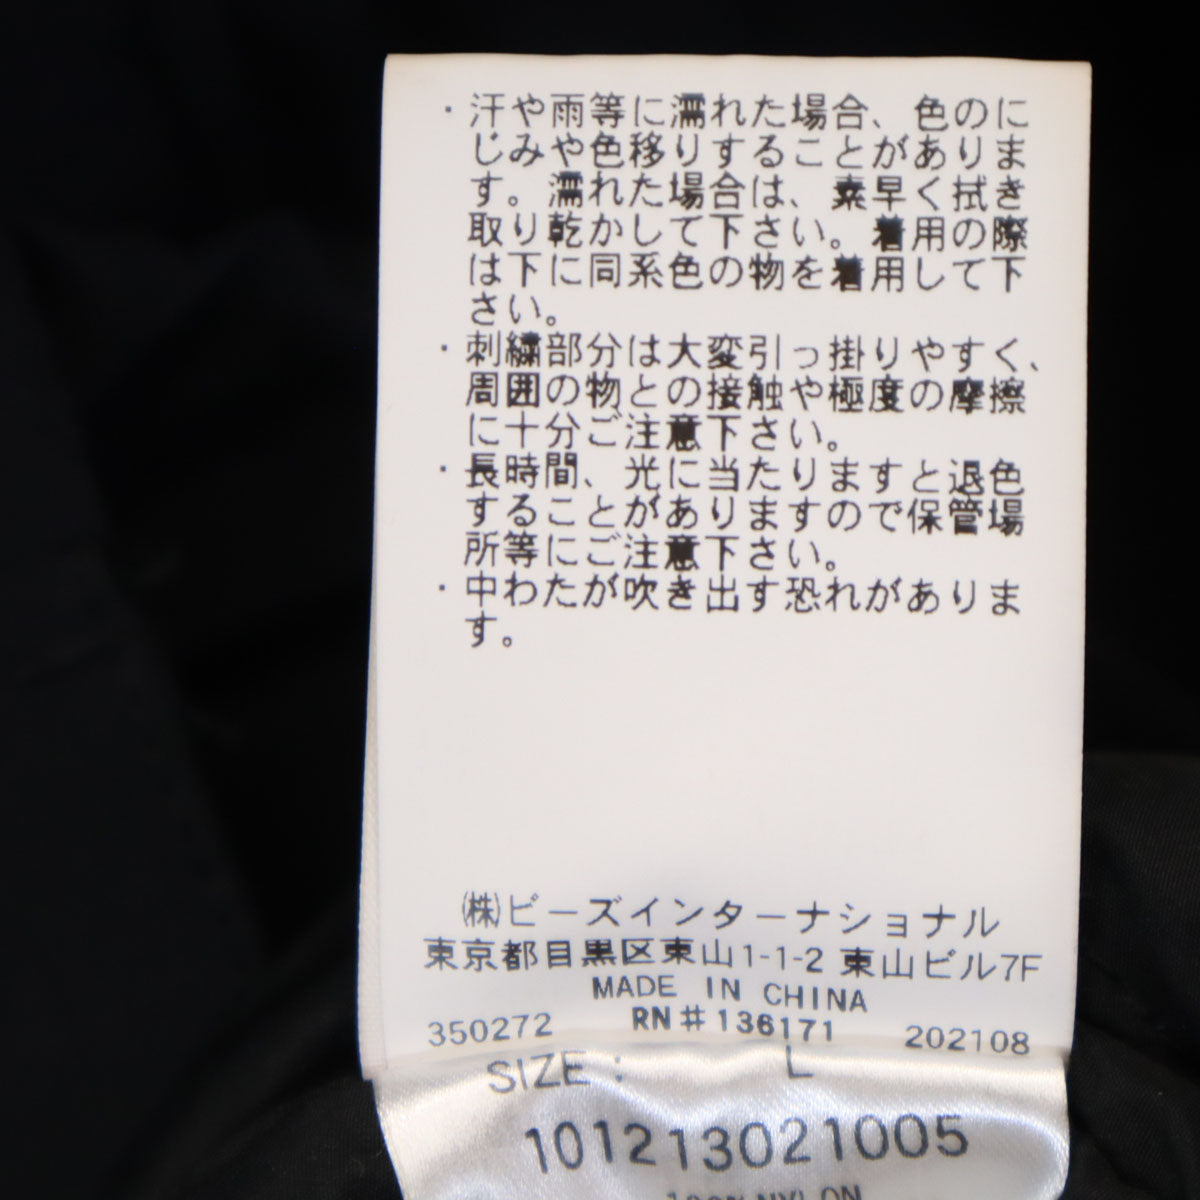 ・汗や雨等に濡れた場合、色のに
じみや色移りすることがありま
す。濡れた場合は、素早く拭き
取り乾かして下さい。着用の際
は下に同系色の物を着用して下
さい。
・刺繍部分は大変引っ掛りやすく、
周囲の物との接触や極度の摩擦
に十分ご注意下さい。
・長時間、光に当たりますと退色
することがありますので保管場
所等にご注意下さい。
・中わたが吹き出す恐れがありま
す。
㈱ビーズインターナショナル
東京都目黒区東山1-1-2 東山ビル7F
MADE IN CHINA
350272 RN#136171 202108
SIZE: L
101213021005
100% NYLON